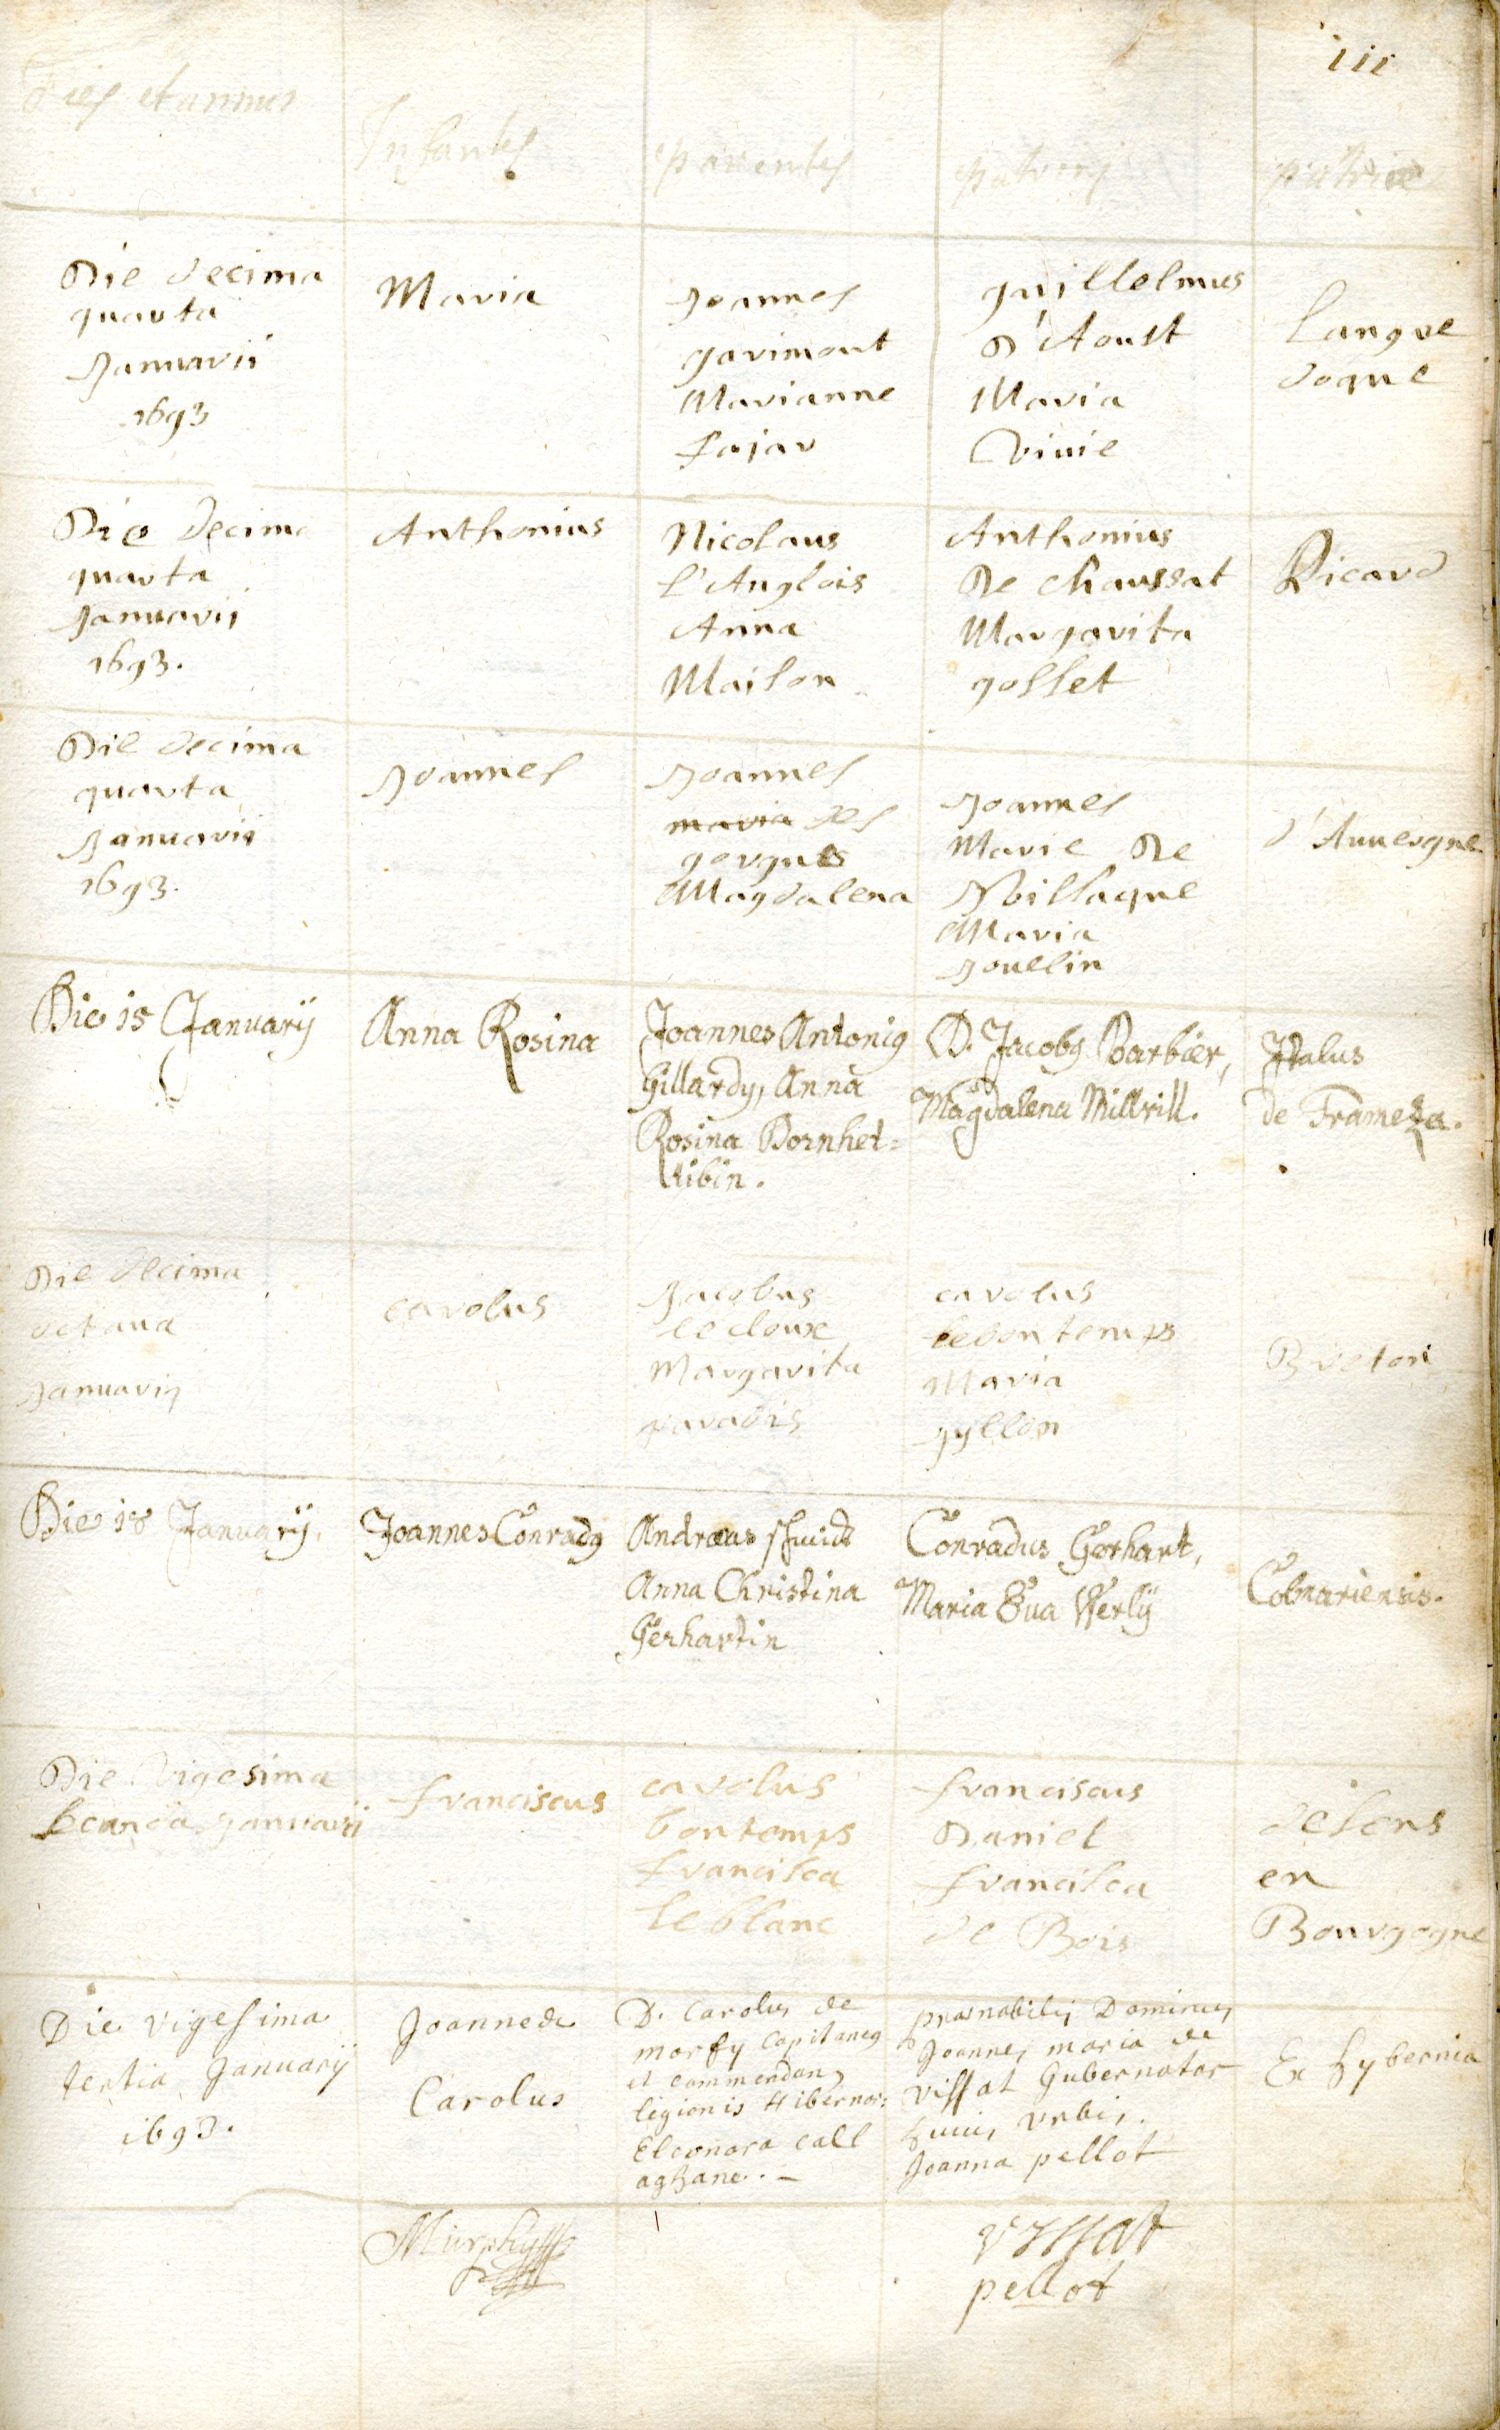 111
Dies et annus
Infantes
parentes
patrini
patriae
Die decima
quarta
Januarii
1693
Maria
Joannes
garimont
Marianne
fajar
guillelmus
D'Aoust
Maria
Vivie
Langue
doque
Die decima
quarta
Januarii
1693.
Anthonius
Nicolaus
l'Anglois
Anna
Mailon
Anthonius
De Chaussat
Margarita
gosset
Picard
Die decima
quarta
Januarii
1693.
Joannes
Joannes
maria des
gorgues
Magdalena
Joannes
Marie De
Maria
Jouelin
d'Auuergne
Die 15 Januarij
Anna Rosina
Joannes Antonig
Gillardy, Anna
Rosina Bornhet=
tibin.
D. Jacobg Barbier,
Magdalena Millvill.
Italus
de Frameza.
Die decima
octaua
Januarij
Carolus
Jacobus
le doux
Margarita
paradis
carolus
lebontemps
Maria
gyllon
Breton
Die 18 January.
Joannes Conradg
Andreas schmidt
Anna Christina
Gerhartin
Conradus Gerhart,
Maria Eua Werlÿ
Colmariensis.
Die vigesima
secunda Januarii
franciscus
carolus
bontemps
francisca
le blanc
franciscus
Daniel
francisca
de Bois
desens
en
Bourgogne
Die vigesima
tertia Januarij
1693.
Joannes
Carolus
D. Carolus de
morfy Capitaneg
et commendans
legionis Hibernor:
Eleonora call
aghane. -
praenobilis Dominus
Joannes maria de
vissat Gubernator
huius urbis.
Joanna pellot
Ex hybernia
Murphy
vissat
pellot